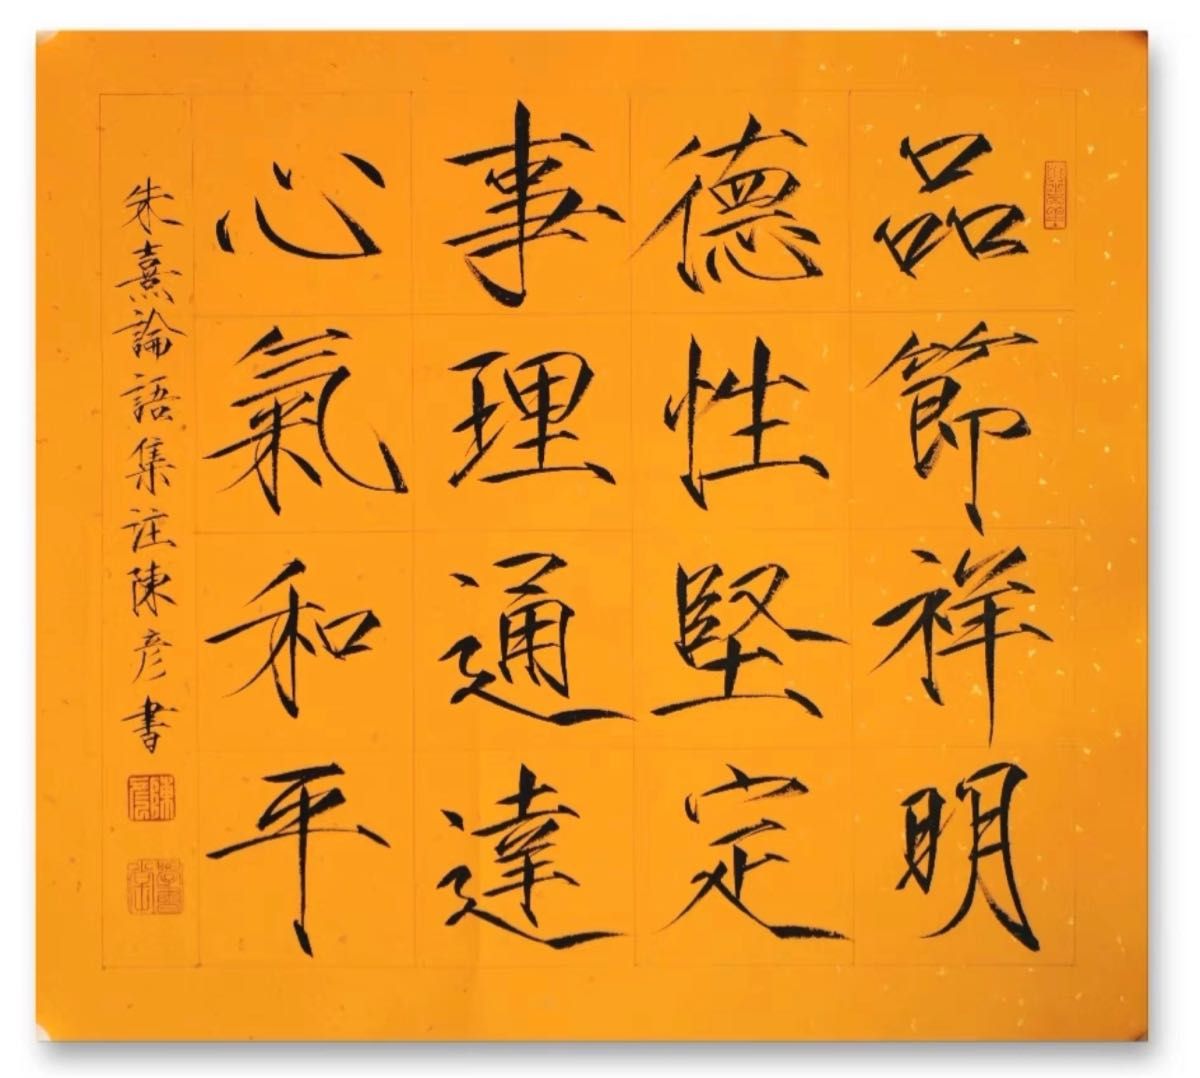 品節祥明
德性堅定
事理通達
心氣和平
朱熹論語集註陳彥書